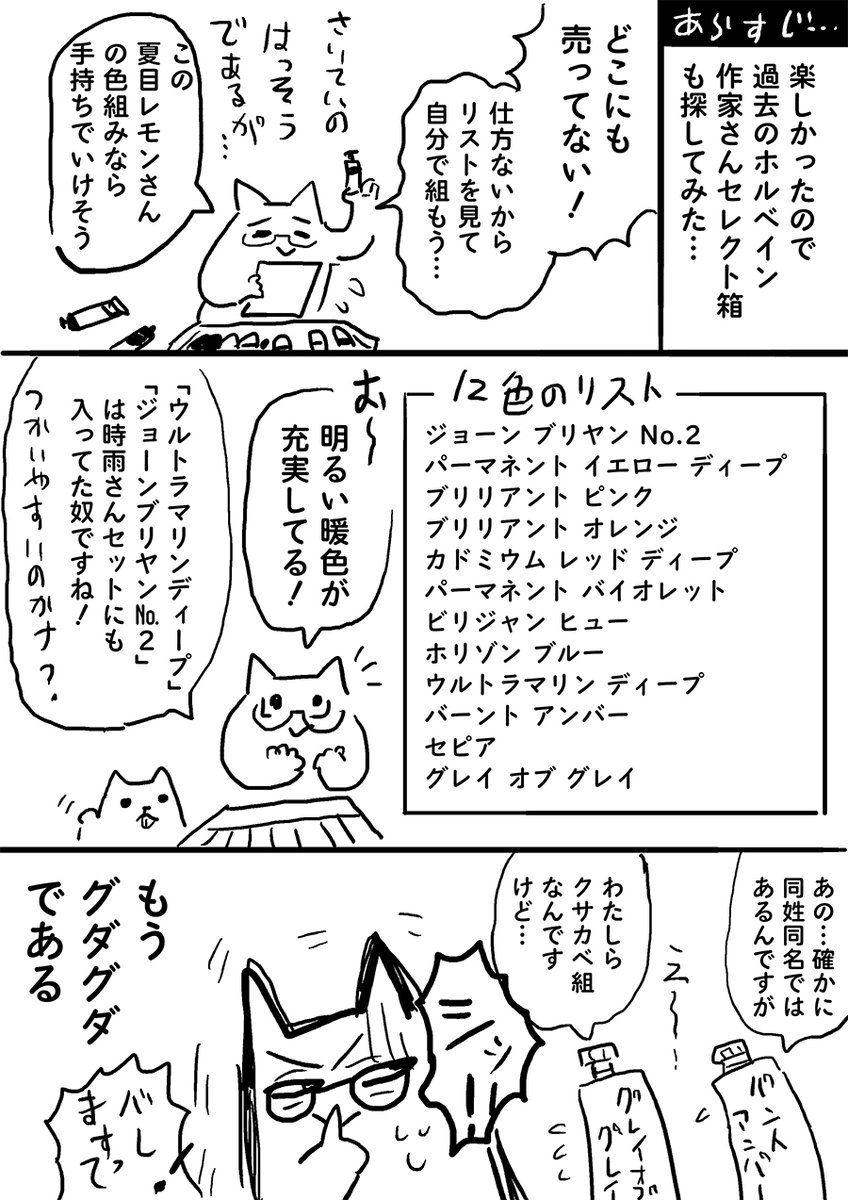 あらすじ…
楽しかったので
過去のホルベイン
作家さんセレクト箱
も探してみた…
どこにも
売ってない！
仕方ないから
リストを見て
自分で組もう…
さいていの
はっそう
であるが…
この
夏目レモンさん
の色組みなら
手持ちでいけそう
12色のリスト
ジョーン ブリヤン No.2
パーマネント イエロー ディープ
ブリリアント ピンク
ブリリアント オレンジ
カドミウム レッド ディープ
パーマネント バイオレット
ビリジャン ヒュー
ホリゾン ブルー
ウルトラマリン ディープ
バーント アンバー
セピア
グレイ オブ グレイ
お〜
明るい暖色が
充実してる！
「ウルトラマリンディープ」
「ジョーンブリヤン№2」
は時雨さんセットにも
入ってた奴ですね！
つかいやすいのかナ？
あの…確かに
同姓同名では
あるんですが
わたしら
クサカベ組
なんです
けど…
エ〜…
バント
アンバー
グレイオブ
グレイ
シッ!!
もう
グダグダ
である
バレ
ますって！